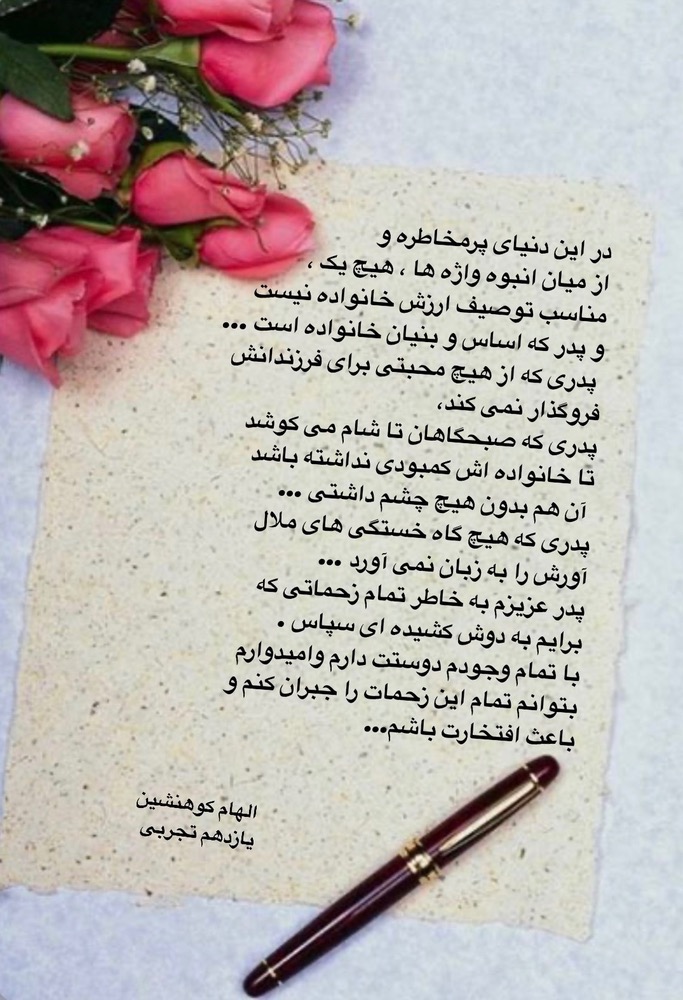 در این دنیای پرمخاطره و
از میان انبوه واژه ها ، هیچ یک ،
مناسب توصیف ارزش خانواده نیست
و پدر که اساس و بنیان خانواده است ...
پدری که از هیچ محبتی برای فرزندانش
فروگذار نمی کند،
پدری که صبحگاهان تا شام می کوشد
تا خانواده اش کمبودی نداشته باشد
آن هم بدون هیچ چشم داشتی ...
پدری که هیچ گاه خستگی های ملال
آورش را به زبان نمی آورد ...
پدر عزیزم به خاطر تمام زحماتی که
برایم به دوش کشیده ای سپاس .
با تمام وجودم دوستت دارم وامیدوارم
بتوانم تمام این زحمات را جبران کنم و
باعث افتخارت باشم...
الهام کوهنشین
یازدهم تجربی